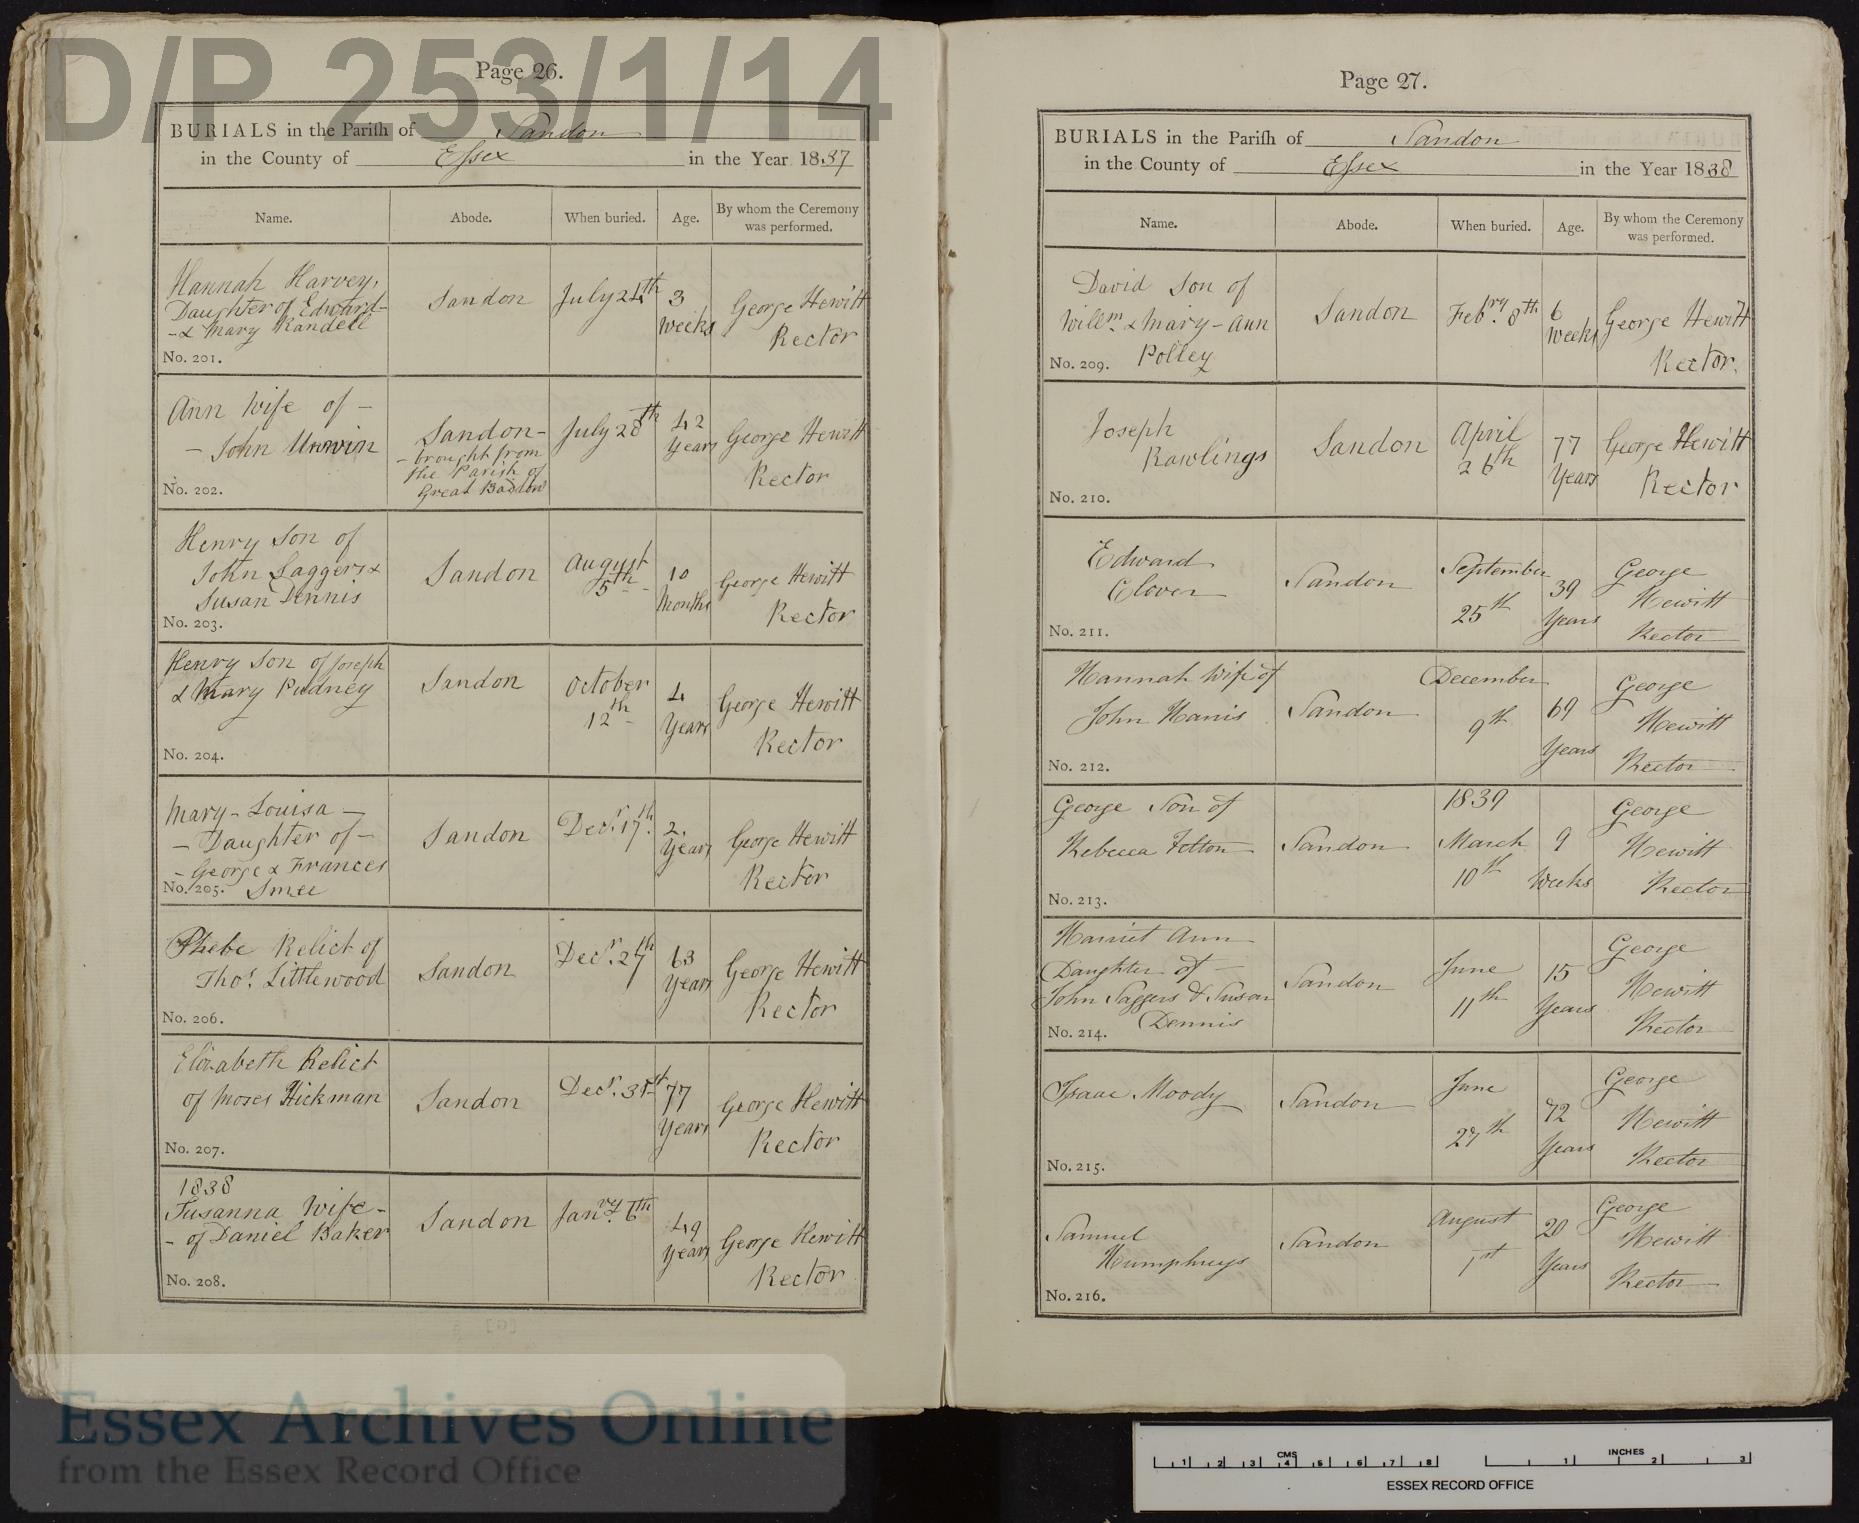 D/P 253/1/14
Page 26.
BURIALS in the Parish of Sandon
in the County of Essex in the Year 1837
Name. Abode. When buried. Age. By whom the Ceremony was performed.
Hannah Harvey, Sandon July 24th 3 George Hewitt
Daughter of Edward- weeks Rector
-& Mary Randell
No. 201.
Ann Wife of - Sandon- July 28th 42 George Hewitt
- John Unwin - brought from Years Rector
the Parish of
Great Baddow
No. 202.
Henry Son of Sandon August 10 George Hewitt
John Saggers & 5th Months Rector
Susan Dennis
No. 203.
Henry Son of Joseph Sandon October 4 George Hewitt
& Mary Pudney 12th Years Rector
No. 204.
Mary-Louisa - Sandon Decr. 17th. 2. George Hewitt
- Daughter of - Years Rector
- George & Frances
No. 205. Smee
Phebe Relict of Sandon Decr. 27th 63 George Hewitt
Thos. Littlewood Years Rector
No. 206.
Elizabeth Relict Sandon Decr. 31st 77 George Hewitt
of Moses Hickman Years Rector
No. 207.
1838
Susanna Wife- Sandon Janry. 6th 49 George Hewitt
- of Daniel Baker Years Rector
No. 208.
Page 27.
BURIALS in the Parish of Sandon
in the County of Essex in the Year 1838
Name. Abode. When buried. Age. By whom the Ceremony was performed.
David Son of Sandon Febry. 8th 6 George Hewitt
Willm. & Mary-Ann Weeks Rector.
No. 209. Polley
Joseph Sandon April 77 George Hewitt
Rawlings 26th Years Rector
No. 210.
Edward Sandon September 39 George
Clover 25th Years Hewitt
No. 211. Rector
Hannah Wife of Sandon December 69 George
John Harris 9th Years Hewitt
No. 212. Rector
1839
George Son of Sandon March 9 George
Rebecca Felton 10th Weeks Hewitt
No. 213. Rector
Harriet Ann Sandon June 15 George
Daughter of - 11th Years Hewitt
John Saggers & Susan Rector
No. 214. Dennis
Isaac Moody Sandon June 72 George
27th Years Hewitt
No. 215. Rector
Samuel Sandon August 20 George
Humphreys 1st Years Hewitt
No. 216. Rector
Essex Archives Online
from the Essex Record Office
CMS INCHES
1 2 3 4 5 6 7 8 1 2 3
ESSEX RECORD OFFICE